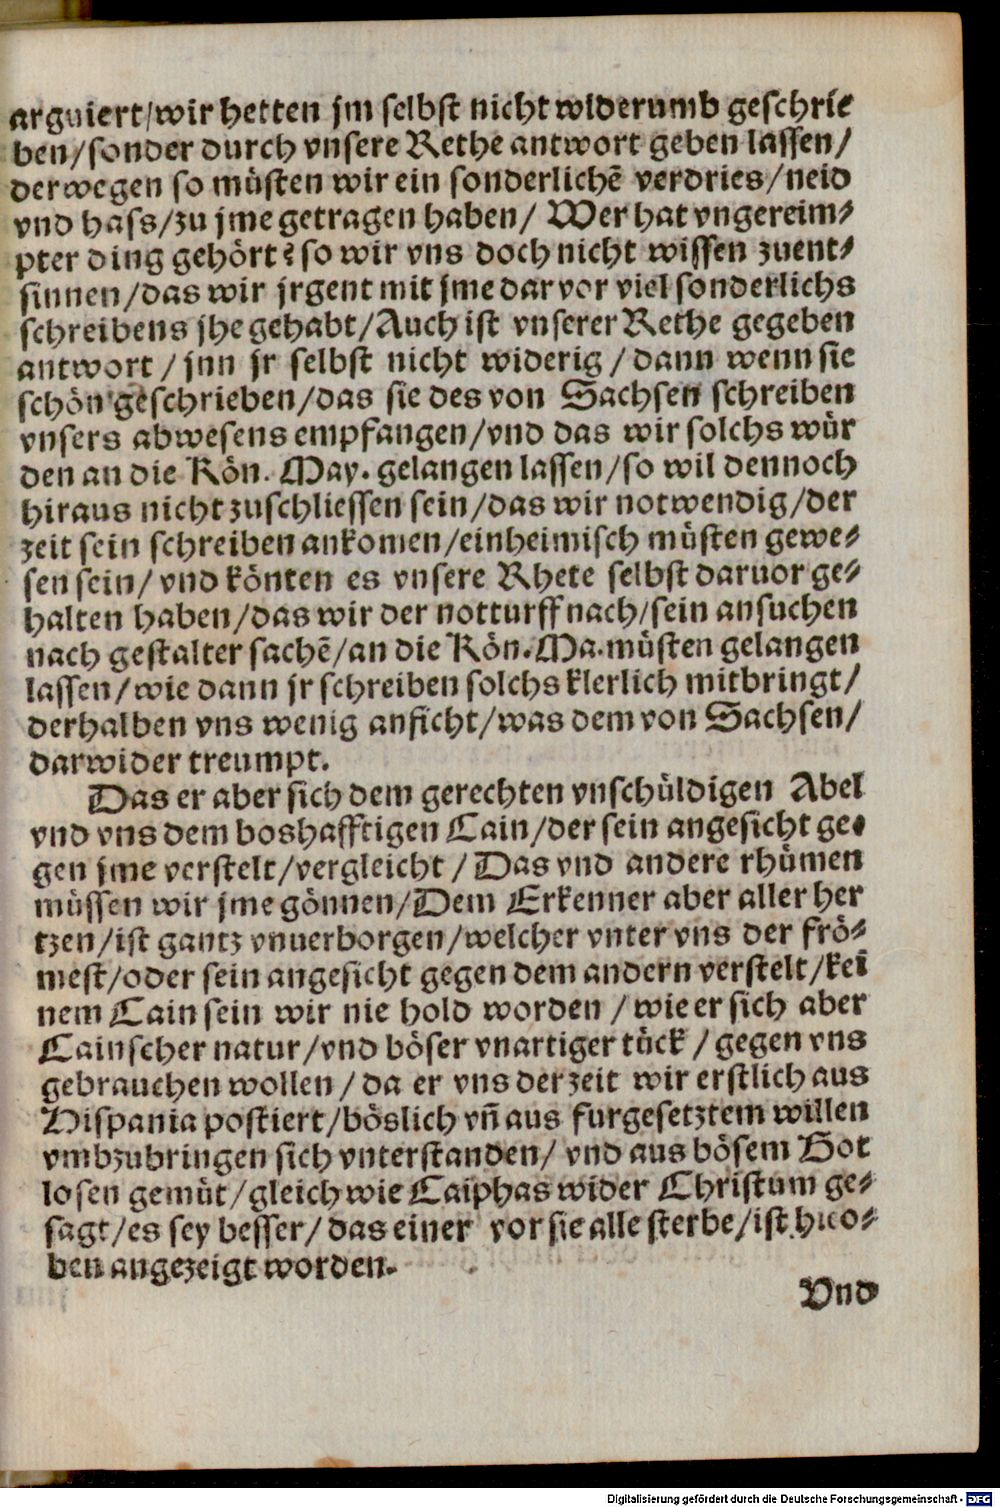 arguiert/wir hetten jm selbst nicht widerumb geschrie
ben/sonder durch vnsere Rethe antwort geben lassen/
derwegen so müsten wir ein sonderlichẽ verdries/neid
vnd hass/zu jme getragen haben/ Wer hat vngereim-
pter ding gehört? so wir vns doch nicht wissen zuent-
sinnen/das wir jrgent mit jme dar vor viel sonderlichs
schreibens jhe gehabt/Auch ist vnserer Rethe gegeben
antwort/jnn jr selbst nicht widerig/dann wenn sie
schön geschrieben/das sie des von Sachsen schreiben
vnsers abwesens empfangen/vnd das wir solchs wür
den an die Kön. May. gelangen lassen/so wil dennoch
hiraus nicht zuschliessen sein/das wir notwendig/der
zeit sein schreiben ankomen/einheimisch müsten gewe-
sen sein/vnd könten es vnsere Rhete selbst daruor ge-
halten haben/das wir der notturfft nach/sein ansuchen
nach gestalter sachẽ/an die Kön. Ma. müsten gelangen
lassen/wie dann jr schreiben solchs klerlich mitbringt/
derhalben vns wenig anficht/was dem von Sachsen/
darwider treumpt.
Das er aber sich dem gerechten vnschüldigen Abel
vnd vns dem boshafftigen Cain/der sein angesicht ge-
gen jme verstelt/vergleicht/Das vnd andere rhümen
müssen wir jme gönnen/Dem Erkenner aber aller her
tzen/ist gantz vnuerborgen/welcher vnter vns der frö-
mest/oder sein angesicht gegen dem andern verstelt/kei
nem Cain sein wir nie hold worden/wie er sich aber
Cainscher natur/vnd böser vnartiger tück/gegen vns
gebrauchen wollen/da er vns der zeit wir erstlich aus
Hispania postiert/böslich vñ aus furgesetztem willen
vmbzubringen sich vnterstanden/vnd aus bösem Got
losen gemüt/gleich wie Caiphas wider Christum ge-
sagt/es sey besser/das einer vor sie alle sterbe/ist hieo-
ben angezeigt worden.
Vnd
Digitalisierung gefördert durch die Deutsche Forschungsgemeinschaft - DFG